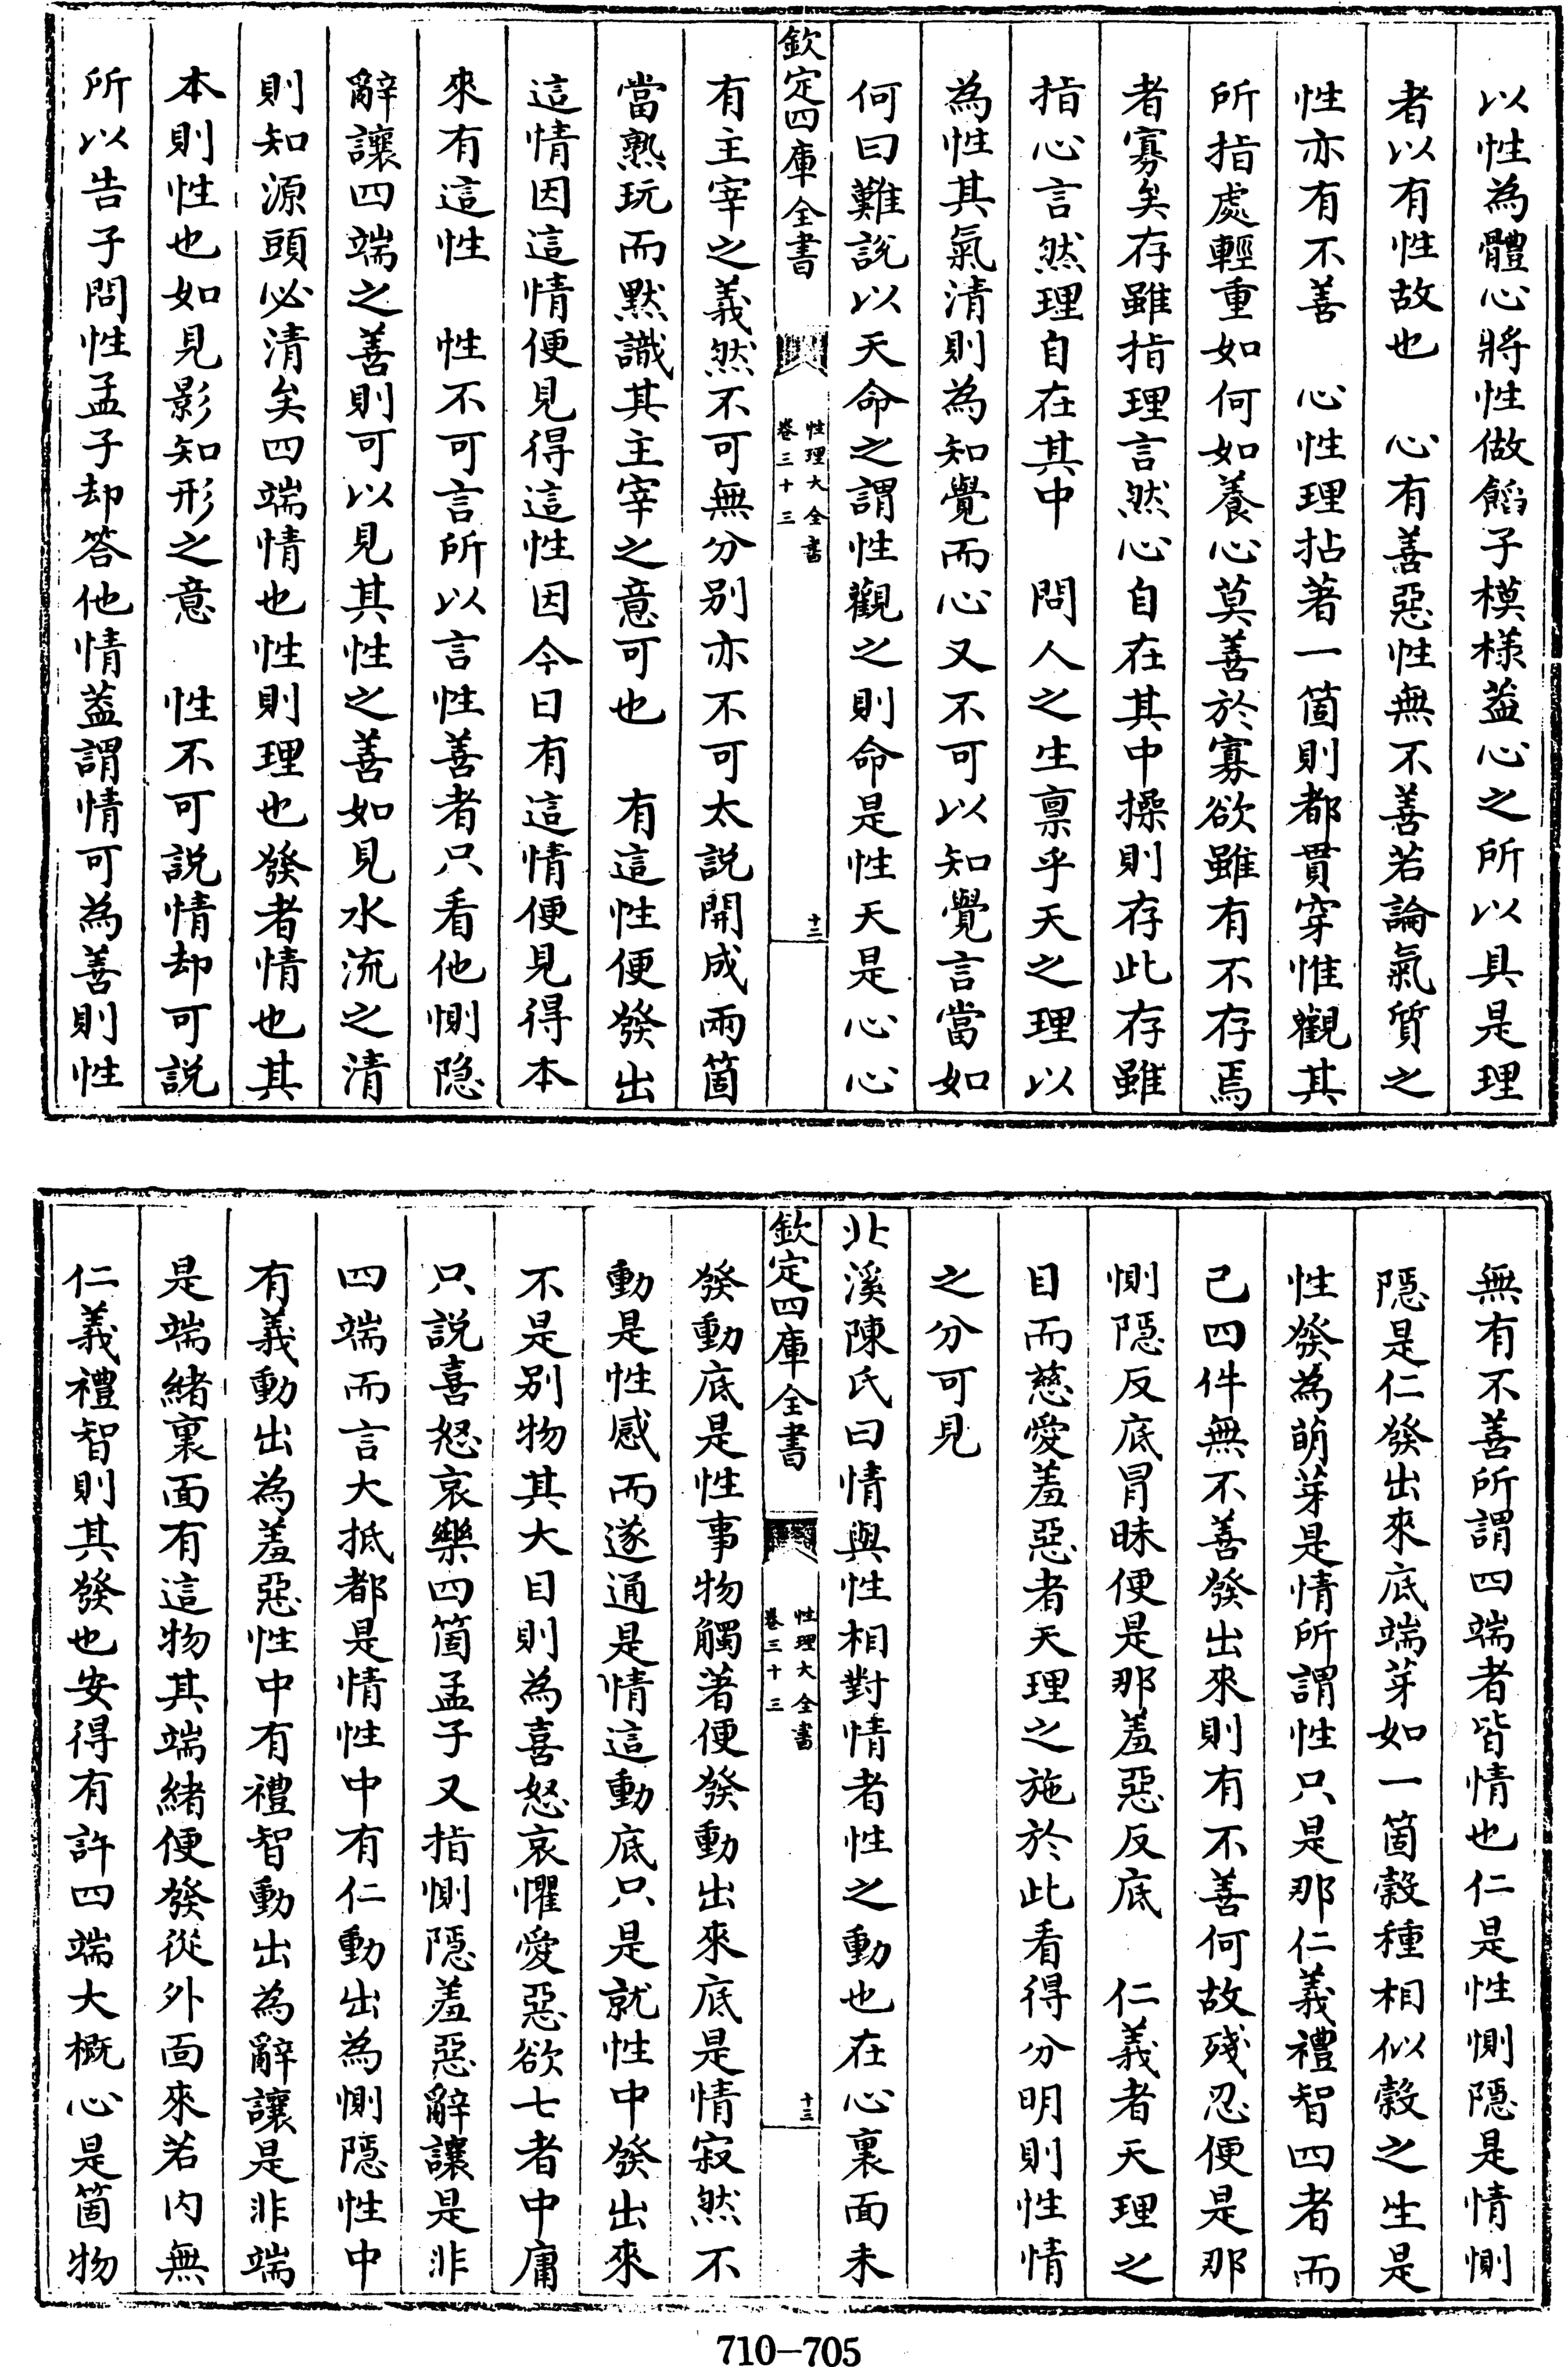 以性為體心將性做餡子模樣葢心之所以具是理
者以有性故也　心有善惡性無不善若論氣質之
性亦有不善　心性理拈著一箇則都貫穿惟觀其
所指處輕重如何如養心莫善於寡欲雖有不存焉
者寡矣存雖指理言然心自在其中操則存此存雖
指心言然理自在其中　問人之生禀乎天之理以
為性其氣清則為知覺而心又不可以知覺言當如
何曰難說以天命之謂性觀之則命是性天是心心
欽定四庫全書
性理大全書
卷三十三
十二
有主宰之義然不可無分别亦不可太説開成兩箇
當熟玩而默識其主宰之意可也　有這性便發出
這情因這情便見得這性因今日有這情便見得本
來有這性　性不可言所以言性善者只看他惻隐
辭讓四端之善則可以見其性之善如見水流之清
則知源頭必清矣四端情也性則理也發者情也其
本則性也如見影知形之意　性不可説情却可説
所以告子問性孟子却答他情葢謂情可為善則性
無有不善所謂四端者皆情也仁是性惻隱是情惻
隱是仁發出來底端芽如一箇穀種相似穀之生是
性發為萌芽是情所謂性只是那仁義禮智四者而
己四件無不善發出來則有不善何故殘忍便是那
惻隱反底冒昧便是那羞惡反底　仁義者天理之
目而慈愛羞惡者天理之施於此看得分明則性情
之分可見
北溪陳氏曰情與性相對情者性之動也在心裏面未
欽定四庫全書
性理大全書
卷三十三
十三
發動底是性事物觸著便發動出來底是情寂然不
動是性感而遂通是情這動底只是就性中發出來
不是别物其大目則為喜怒哀懼愛惡欲七者中庸
只説喜怒哀樂四箇孟子又指惻隱羞惡辭讓是非
四端而言大抵都是情性中有仁動出為惻隱性中
有義動出為羞惡性中有禮智動出為辭讓是非端
是端緒裏面有這物其端緒便發從外面來若内無
仁義禮智則其發也安得有許四端大概心是箇物
710-705